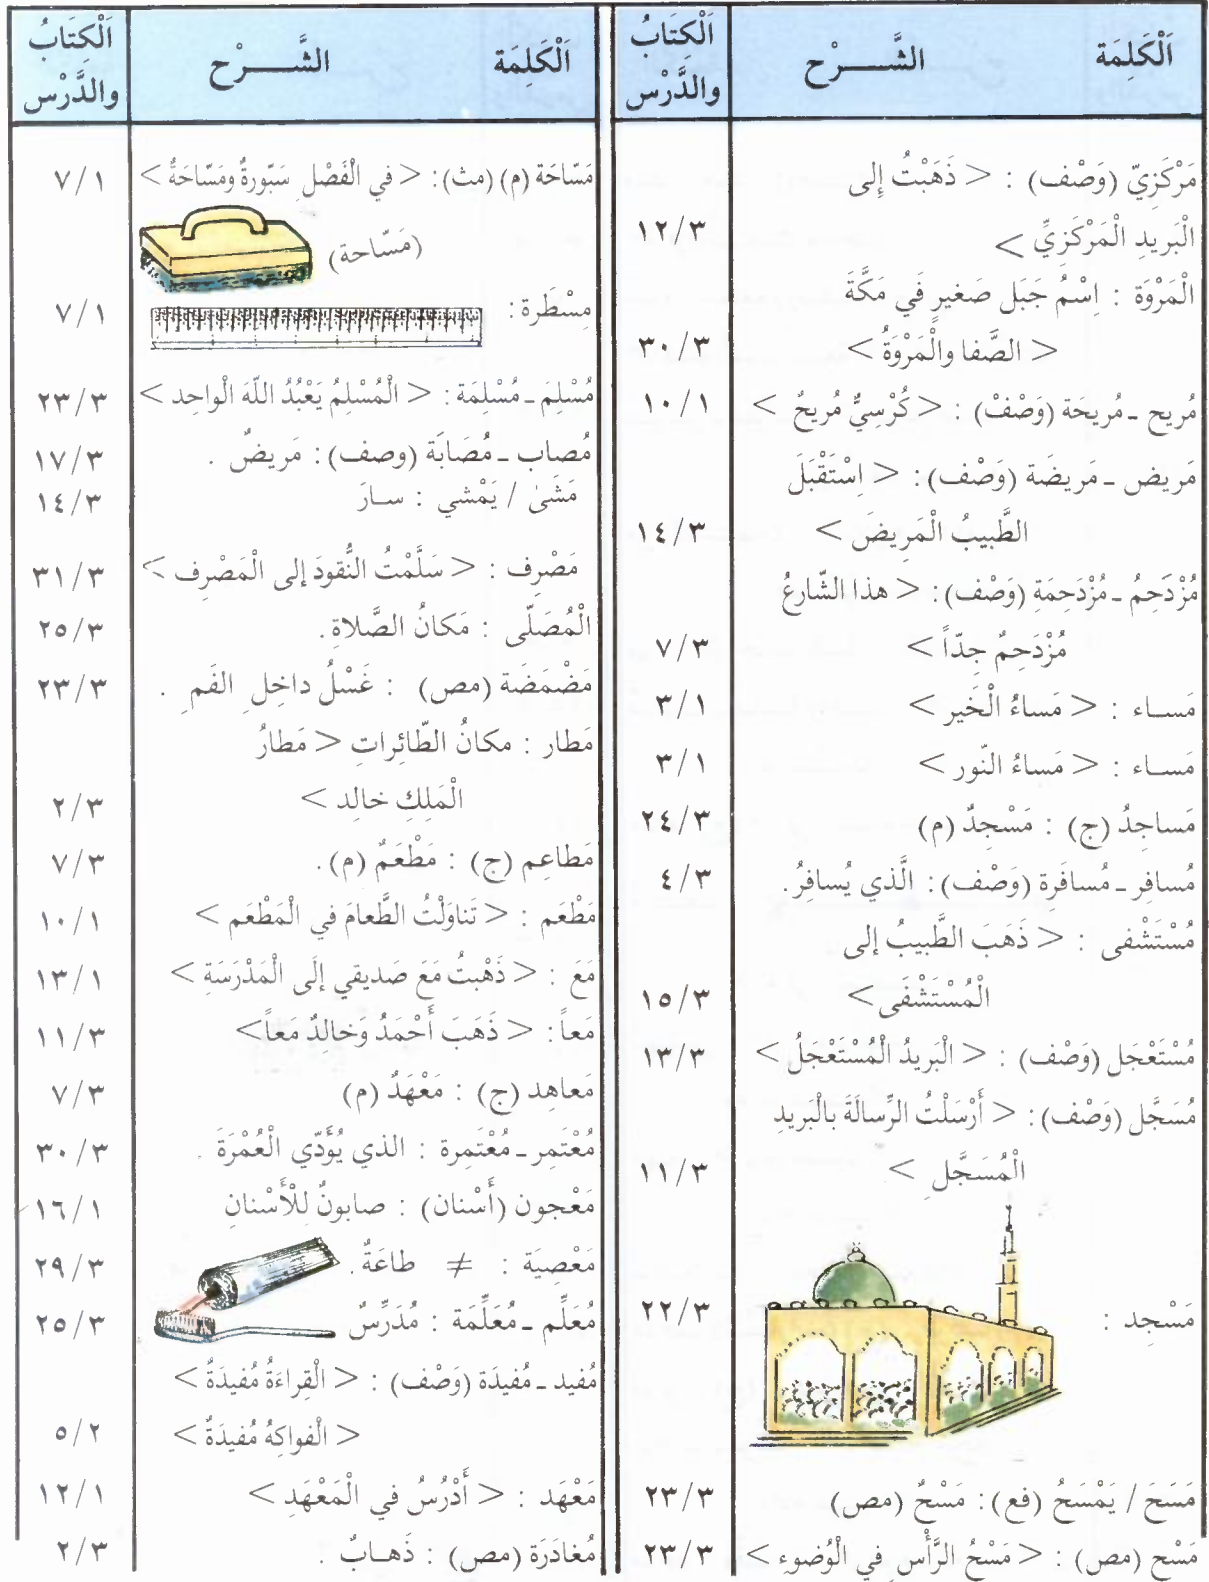 اَلْكَلِمَة الشَّـــرْح اَلْكِتَابُ والدَّرْس
مَرْكَزِيّ (وَصْف) : < ذَهَبْتُ إِلى
الْبَريدِ الْمَرْكَزِيِّ > ١٢/٣
الْمَرْوَة : اِسْمُ جَبَل صَغيرٍ فَي مَكَّةَ
< الصَّفا والْمَرْوَةُ > ٣٠/٣
مُريح ـ مُريحَة (وَصْفْ) : < كُرْسِيٌّ مُريحٌ > ١٠/١
مَريض ـ مَريضَة (وَصْف) : < اِسْتَقْبَلَ
الطَّبيبُ الْمَريضَ > ١٤/٣
مُزْدَحِمُ ـ مُزْدَحِمَةِ (وَصْف) : < هذا الشّارِعُ
مُزْدَحِمٌ جِدّاً > ٧/٣
مَســاء : < مَساءُ الْخَير > ٣/١
مَســاء : < مَساءُ النّور > ٣/١
مَساجِدُ (ج) : مَسْجِدٌ (م) ٢٤/٣
مُسافِر ـ مُسافَرِة (وَصْف) : الَّذي يُسافِرُ. ٤/٣
مُسْتَشْفى : < ذَهَبَ الطَّبيبُ إلى
الْمُسْتَشْفَى > ١٥/٣
مُسْتَعْجَل (وَصْف) : < الْبَريدُ الْمُسْتَعْجَلُ > ١٣/٣
مُسَجَّل (وَصْف) : < أَرْسَلْتُ الرِّسالَةَ بالْبَريدِ
الْمُسَجَّلِ > ١١/٣
مَسْجِد : ٢٢/٣
مَسَحَ / يَمْسَحُ (فع) : مَسْحٌ (مص) ٢٣/٣
مَسْح (مص) : < مَسْحُ الرَّأْسِ في الْوُضوءِ > ٢٣/٣
اَلْكَلِمَة الشَّـــرْح اَلْكِتَابُ والدَّرْس
مَسّاحَة (م) (مث) : < في الْفَصْلِ سَبّورةٌ ومَسّاحَةٌ > ٧/١
(مَسّاحة)
مِسْطَرة : ٧/١
مُسْلِمَ ـ مُسْلِمَة : < الْمُسْلِمُ يَعْبُدُ اللّهَ الْواحِد > ٢٣/٣
مُصاب ـ مُصَابَة (وصف) : مَريضٌ . ١٧/٣
مَشَىٰ / يَمْشي : ســارَ ١٤/٣
مَصْرِف : < سَلَّمْتُ النُّقودَ إلى الْمَصْرِف > ٣١/٣
الْمُصَلّى : مَكانُ الصَّلاةِ. ٢٥/٣
مَضْمَضَة (مص) : غَسْلُ داخِلِ الفَمِ . ٢٣/٣
مَطار : مكانُ الطّائِراتِ < مَطارُ
الْمَلِكِ خالِد > ٢/٣
مَطاعِم (ج) : مَطْعَمٌ (م). ٧/٣
مَطْعَم : < تَناوَلْتُ الطَّعامَ في الْمَطْعَم > ١٠/١
مَعَ : < ذَهْبتُ مَعَ صَديقي إلَى الْمَدْرَسَةِ > ١٣/١
مَعاً : < ذَهَبَ أَحْمَدُ وَخالِدٌ مَعاً> ١١/٣
مَعاهِد (ج) : مَعْهَدٌ (م) ٧/٣
مُعْتَمِر ـ مُعْتَمِرة : الذي يُؤَدّي الْعُمْرَةَ . ٣٠/٣
مَعْجون (أَسْنان) : صابونٌ لِلْأَسْنانِ ١٦/١
مَعْصِيَة : ≠ طاعَةٌ. ٢٩/٣
مُعَلِّم ـ مُعَلِّمَة : مُدَرِّسٌ ٢٥/٣
مُفيد ـ مُفيدَة (وَصْف) : < الْقِراءَةُ مُفيدَةٌ >
< الْفواكِهُ مُفيدَةٌ > ٥/٢
مَعْهَد : < أَدْرُسُ في الْمَعْهَدِ > ١٢/١
مُغادَرَة (مص) : ذَهــابٌ . ٢/٣